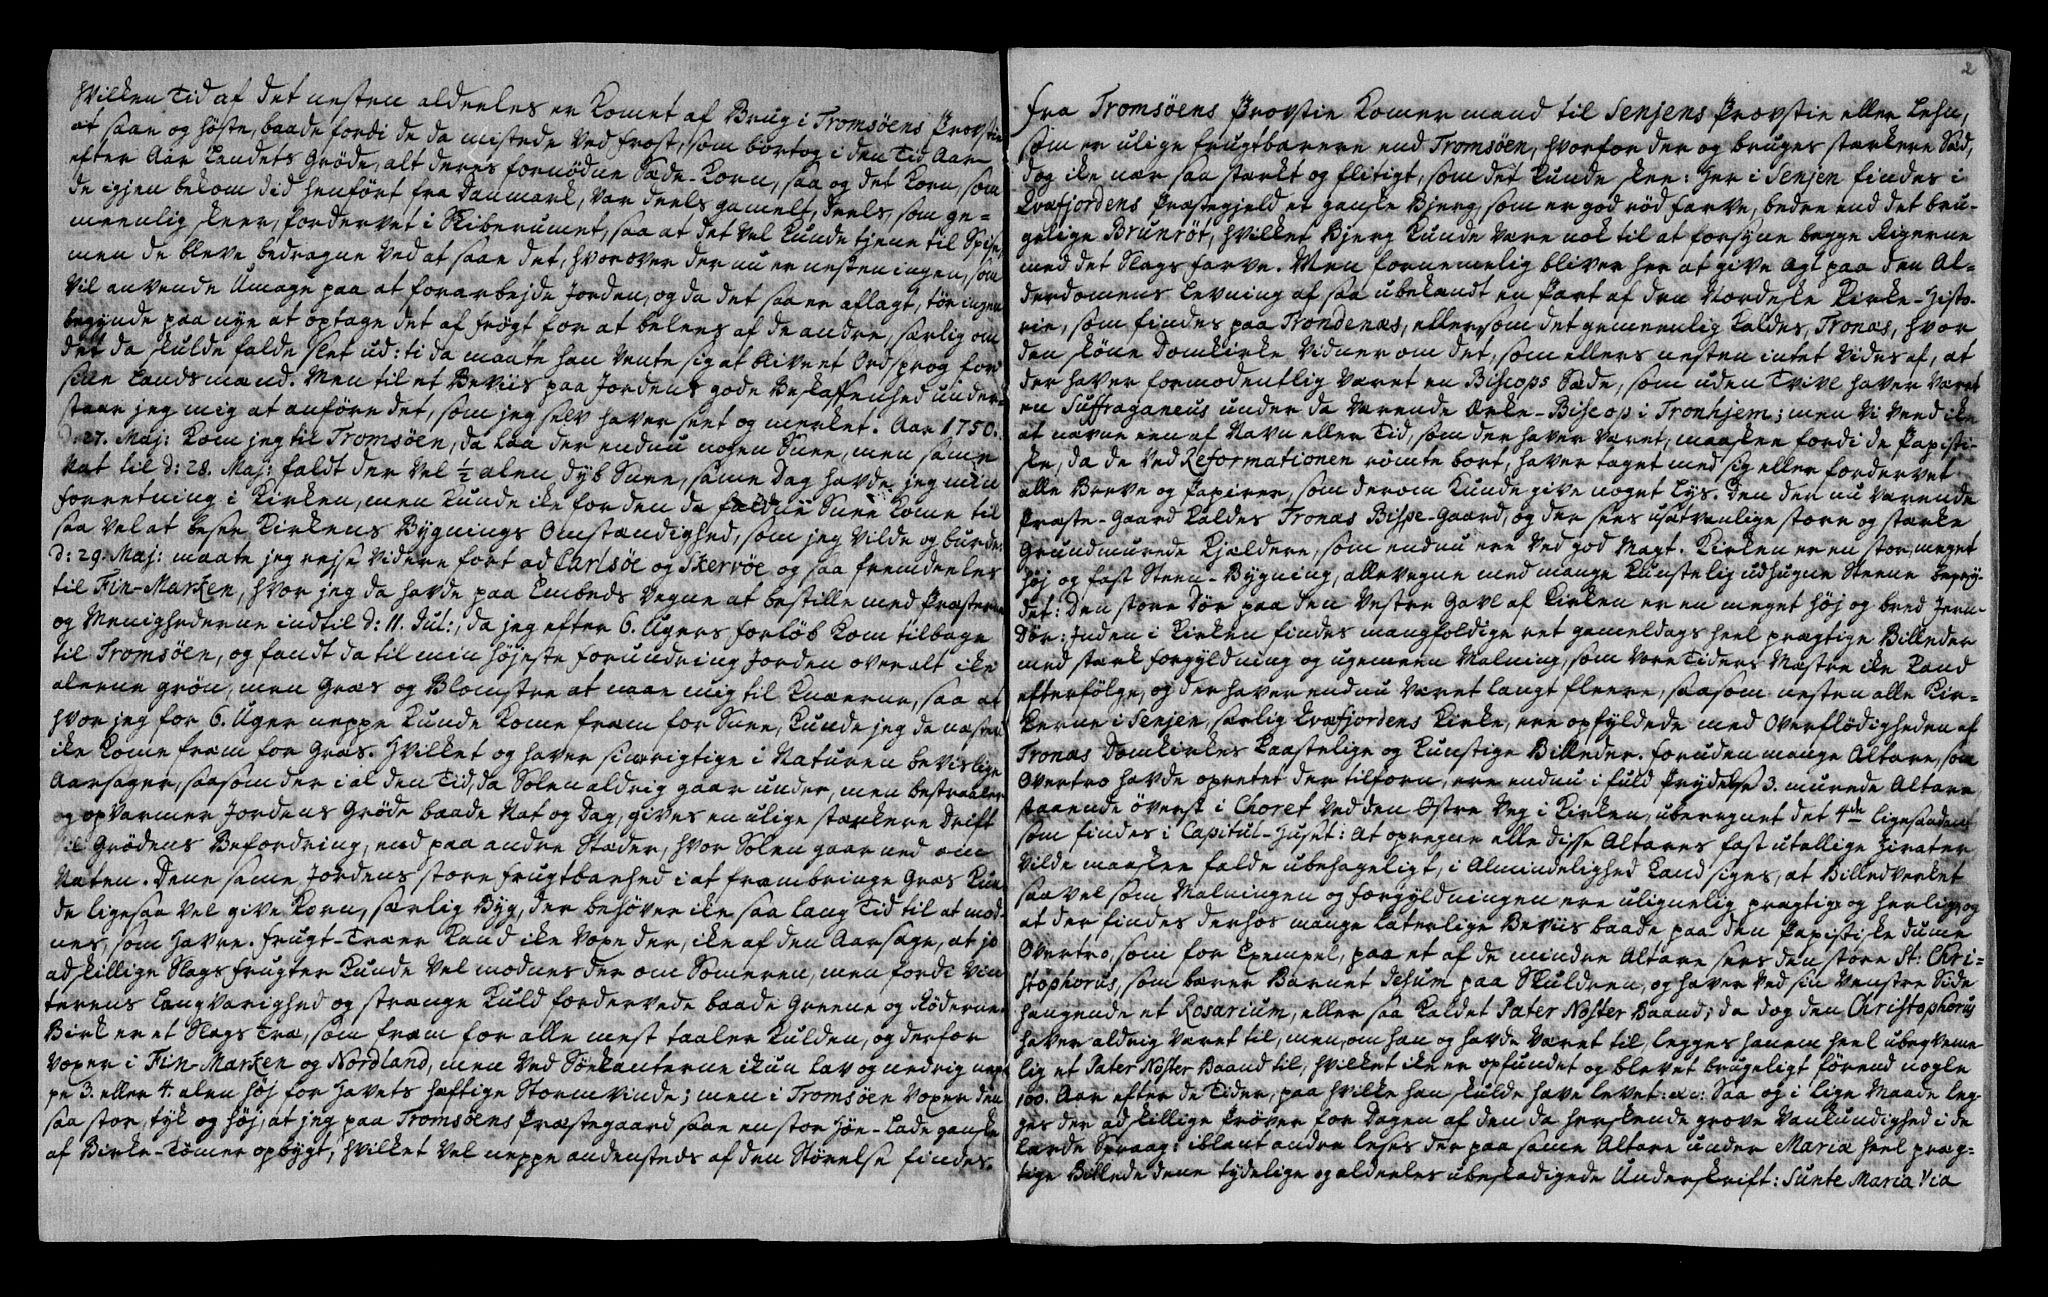 hvilken Tid af det nesten aldeeles er komet af Brug i Tromsøens Provstie
at saae og høste, baade fordi de da mistede ved Frost, som bortog i den Tid Aar
efter Aar Landets Grøde, alt deres fornødne Sæde-Korn, saa og det Korn, som
de igjen bekom did henført fra Danmark, var deels gamelt, deels, som ge-
meenlig skeer, fordervet i Skiberumet, saa at det vel kunde tjene til Spise,
men de bleve bedragne ved at saae det, hvorover der nu er nesten ingen, som
vil anvende Umage paa at forarbejde Jorden, og da det saa er aflagt, tør ingen
begynde paa nye at optage det af Frøgt for at belees af de andre, særlig om
det da skulde falde slet ud: ti da maate han vente sig at blive et Ordsprog for
sine Landsmænd. Men til et Beviis paa Jordens gode Beskaffenhed under-
staaer jeg mig at anføre det, som jeg selv haver seet og merket. Aar 1750.
d: 27. Maj: kom jeg til Tromsøen, da laa der endnu nogen Snee, men same
Nat til d: 28. Maj: faldt der vel ½ alen dyb Snee, same Dag havde jeg min
Forretning i Kirken, men kunde ike for den da faldne Snee kome til
saa vel at besee Kirkens Bygnings Omstændighed, som jeg vilde og burde.
d: 29. Maj: maate jeg rejse videre fort ad Carlsöe og Skervöe og saa fremdeeles
til Fin-Marken, hvor jeg da havde paa Embeds vegne at bestille med Præsterne
og Menighederne indtil d: 11. Jul:, da jeg efter 6. Ugers forløb kom tilbage
til Tromsøen, og fandt da til min højeste Forundring Jorden overalt ike
aleene grøn, men Græs og Blomster at naae mig til Knæerne, saa at
hvor jeg for 6. Uger neppe kunde kome fram for Snee, kunde jeg da næsten
ike kome fram for Græs. Hvilket og haver sine rigtige i Naturen bevislige
Aarsager, saasom der i al den Tid, da Solen aldrig gaar under, men bestraaler
og opvarmer Jordens Grøde baade Nat og Dag, gives en ulige stærkere Drift
til Grødens Befordring, end paa andre Stæder, hvor Solen gaar ned om
Naten. Dene same Jordens store Frugtbarhed i at frambringe Græs kun-
de ligesaa vel give Korn, særlig Byg, der behøver ike saa lang Tid til at mod-
nes, som Havre. Frugt-Træer kand ike voxe der, ike af den Aarsage, at jo
adskillige Slags Frugter kunde vel modnes der om Someren, men fordi Vin
terens Langvarighed og strænge Kuld fordervede baade Greene og Røderne.
Birk er et Slags Træ, som fræm for alle mest taaler Kulden, og derfor
voxer i Fin-Marken og Nordland, men ved Søekanterne ikun lav og nedrig nep-
pe 3. eller 4. alen høj for Havets hæftige Stormvinde; men i Tromsøen voxer den
saa stor, tyk og høj, at jeg paa Tromsøens Præstegaard saae en stor Høe-Lade ganske
af Birke-Tømer opbygt, hvilket vel neppe andensteds af den Størelse findes.
2
Fra Tromsöens Provstie komer mand til Senjens Provstie eller Lehn,
som er ulige frugtbarere end Tromsøen, hvorfor der og bruges stærkere Sæd,
dog ike nær saa stærkt og flitigt, som det kunde skee: Her i Senjen findes i
Qvæfjordens Præstegjeld et ganske Bjerg, som er god rød farve, bedre end det bru-
gelige Brunrøt, hvilket Bjerg kunde være nok til at forsyne begge Rigerne
med det Slags Farve. Men fornemelig bliver her at give Agt paa den Al-
derdomens Levning af saa ubekandt en Part af den Nordske Kirke-Histo-
rie, som findes paa Trondenæs, eller som det gemeenlig kaldes, Tronæs, hvor
den skøne Domkirke vidner om det, som ellers nesten intet vides af, at
der haver formodentlig været en Biscops Sæde, som uden Tvivl haver været
en Suffraganeus under da værende Erke-Biscop i Tronhjem; men vi veed ike
at nævne een af Navn eller Tid, som der haver været, maaskee fordi de Papisti-
ske, da de ved Reformationen rømte bort, haver taget med sig eller fordervet
alle Breve og Papirer, som derom kunde give noget Lys. Den der nu værende
Præste-Gaard kaldes Tronæs Bispe-Gaard, og der sees usævanlige store og stærke
Grundmurede Kjældere, som endnu ere ved god Magt. Kirken er en stor, meget
høj og fast Steen-Bygning, allevegne med mange kunstelig udhugne Steene bepry-
det: Den store Dør paa den vestre Gavl af Kirken er en meget høj og bred Jern-
Dør: Inden i Kirken findes mangfoldige ret gameldags heel prægtige Billeder
med stærk Forgyldning og ugemeen Malning, som vore Tiders Mæstre ike kand
efterfølge, og der haver endnu været langt fleere, saasom nesten alle Kir-
kerne i Senjen, særlig Qvæfjordens Kirke, ere opfyldede med Overflødigheden af
Tronæs Domkirkes kaastelige og kunstige Billeder. Foruden mange Altare, som
Overtro havde oprettet der tilforn, ere endnu i fuld Prydelse 3. murede Altare
staaende øverst i Choret ved den Østre Veg i Kirken, uberegnet det 4de ligesaadant
som findes i Capitul-Huset: At opregne alle disse Altares fast utallige Zirater
vilde maaskee falde ubehageligt, i Almindelighed kand siges, at Billedverket
saa vel som Malningen og Forgyldningen ere ulignelig prægtige og herlige, og
at der findes derhos mange laterlige Beviis baade paa den Papistiske dume
Overtro, som for Exempel, paa et af de mindre Altare sees den store St. Chri-
stophorus, som bærer Barnet Jesum paa Skuldren, og haver ved sin venstre Side
hængende et Rosarium, eller saa kaldet Pater Noster Baand; da dog den Christophorus
haver aldrig været til, men, om han og havde været til, legges hanem heel ubeqveme
lig et Pater Noster Baand til, hvilket ike er opfundet og blevet brugeligt førend nogle
100. Aar efter de Tider, paa hvilke han skulde have levet: Saa og i lige Maade leg-
ges der adskillige Prøver for Dagen af den da herskende grove Vankundighed i de
lærde Spraag: iblant andre leses der paa same Altare under Mariæ heel præg-
tige Billede dene tydelige og aldeeles ubeskadigede Underskrift: Sunte Maria Via